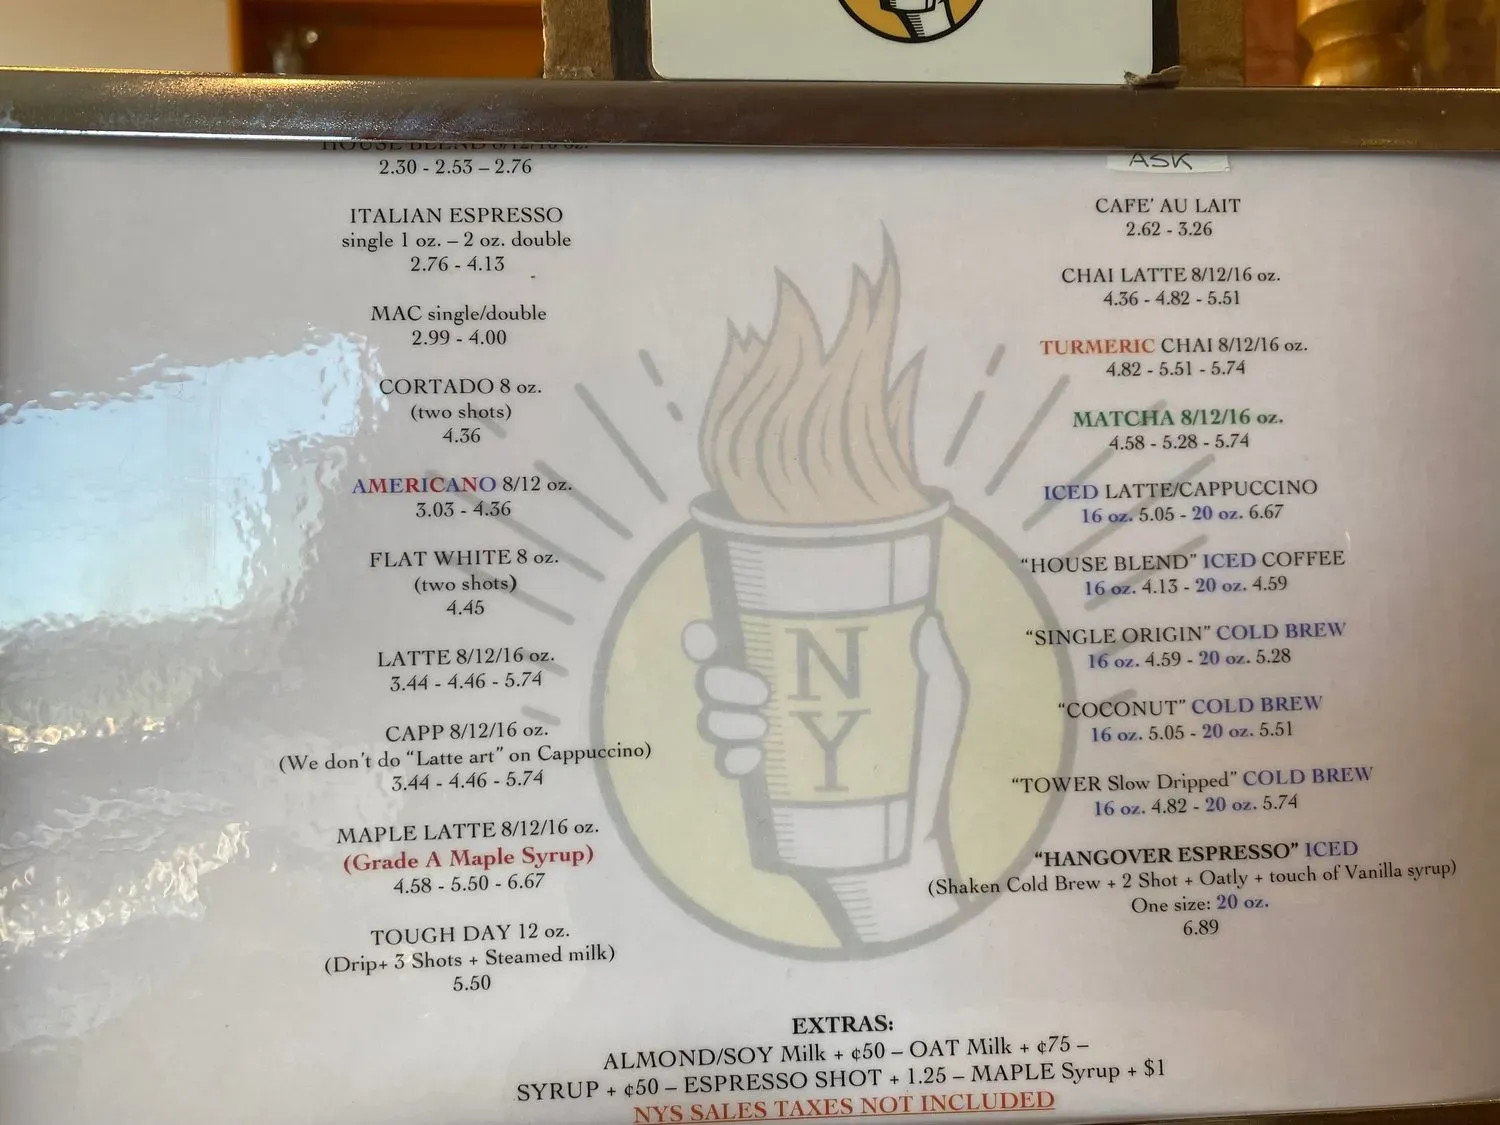 HOUSE BLEND 8/12/16 oz.
2.30 - 2.53 – 2.76
ITALIAN ESPRESSO
single 1 oz. – 2 oz. double
2.76 - 4.13
MAC single/double
2.99 - 4.00
CORTADO 8 oz.
(two shots)
4.36
AMERICANO 8/12 oz.
3.03 - 4.36
FLAT WHITE 8 oz.
(two shots)
4.45
LATTE 8/12/16 oz.
3.44 - 4.46 - 5.74
CAPP 8/12/16 oz.
(We don't do “Latte art” on Cappuccino)
3.44 - 4.46 - 5.74
MAPLE LATTE 8/12/16 oz.
(Grade A Maple Syrup)
4.58 - 5.50 - 6.67
TOUGH DAY 12 oz.
(Drip+ 3 Shots + Steamed milk)
5.50
N
Y
ASK
CAFE’ AU LAIT
2.62 - 3.26
CHAI LATTE 8/12/16 oz.
4.36 - 4.82 - 5.51
TURMERIC CHAI 8/12/16 oz.
4.82 - 5.51 - 5.74
MATCHA 8/12/16 oz.
4.58 - 5.28 - 5.74
ICED LATTE/CAPPUCCINO
16 oz. 5.05 - 20 oz. 6.67
“HOUSE BLEND” ICED COFFEE
16 oz. 4.13 - 20 oz. 4.59
“SINGLE ORIGIN” COLD BREW
16 oz. 4.59 - 20 oz. 5.28
“COCONUT” COLD BREW
16 oz. 5.05 - 20 oz. 5.51
“TOWER Slow Dripped” COLD BREW
16 oz. 4.82 - 20 oz. 5.74
“HANGOVER ESPRESSO” ICED
(Shaken Cold Brew + 2 Shot + Oatly + touch of Vanilla syrup)
One size: 20 oz.
6.89
EXTRAS:
ALMOND/SOY Milk + ¢50 – OAT Milk + ¢75 –
SYRUP + ¢50 – ESPRESSO SHOT + 1.25 – MAPLE Syrup + $1
NYS SALES TAXES NOT INCLUDED